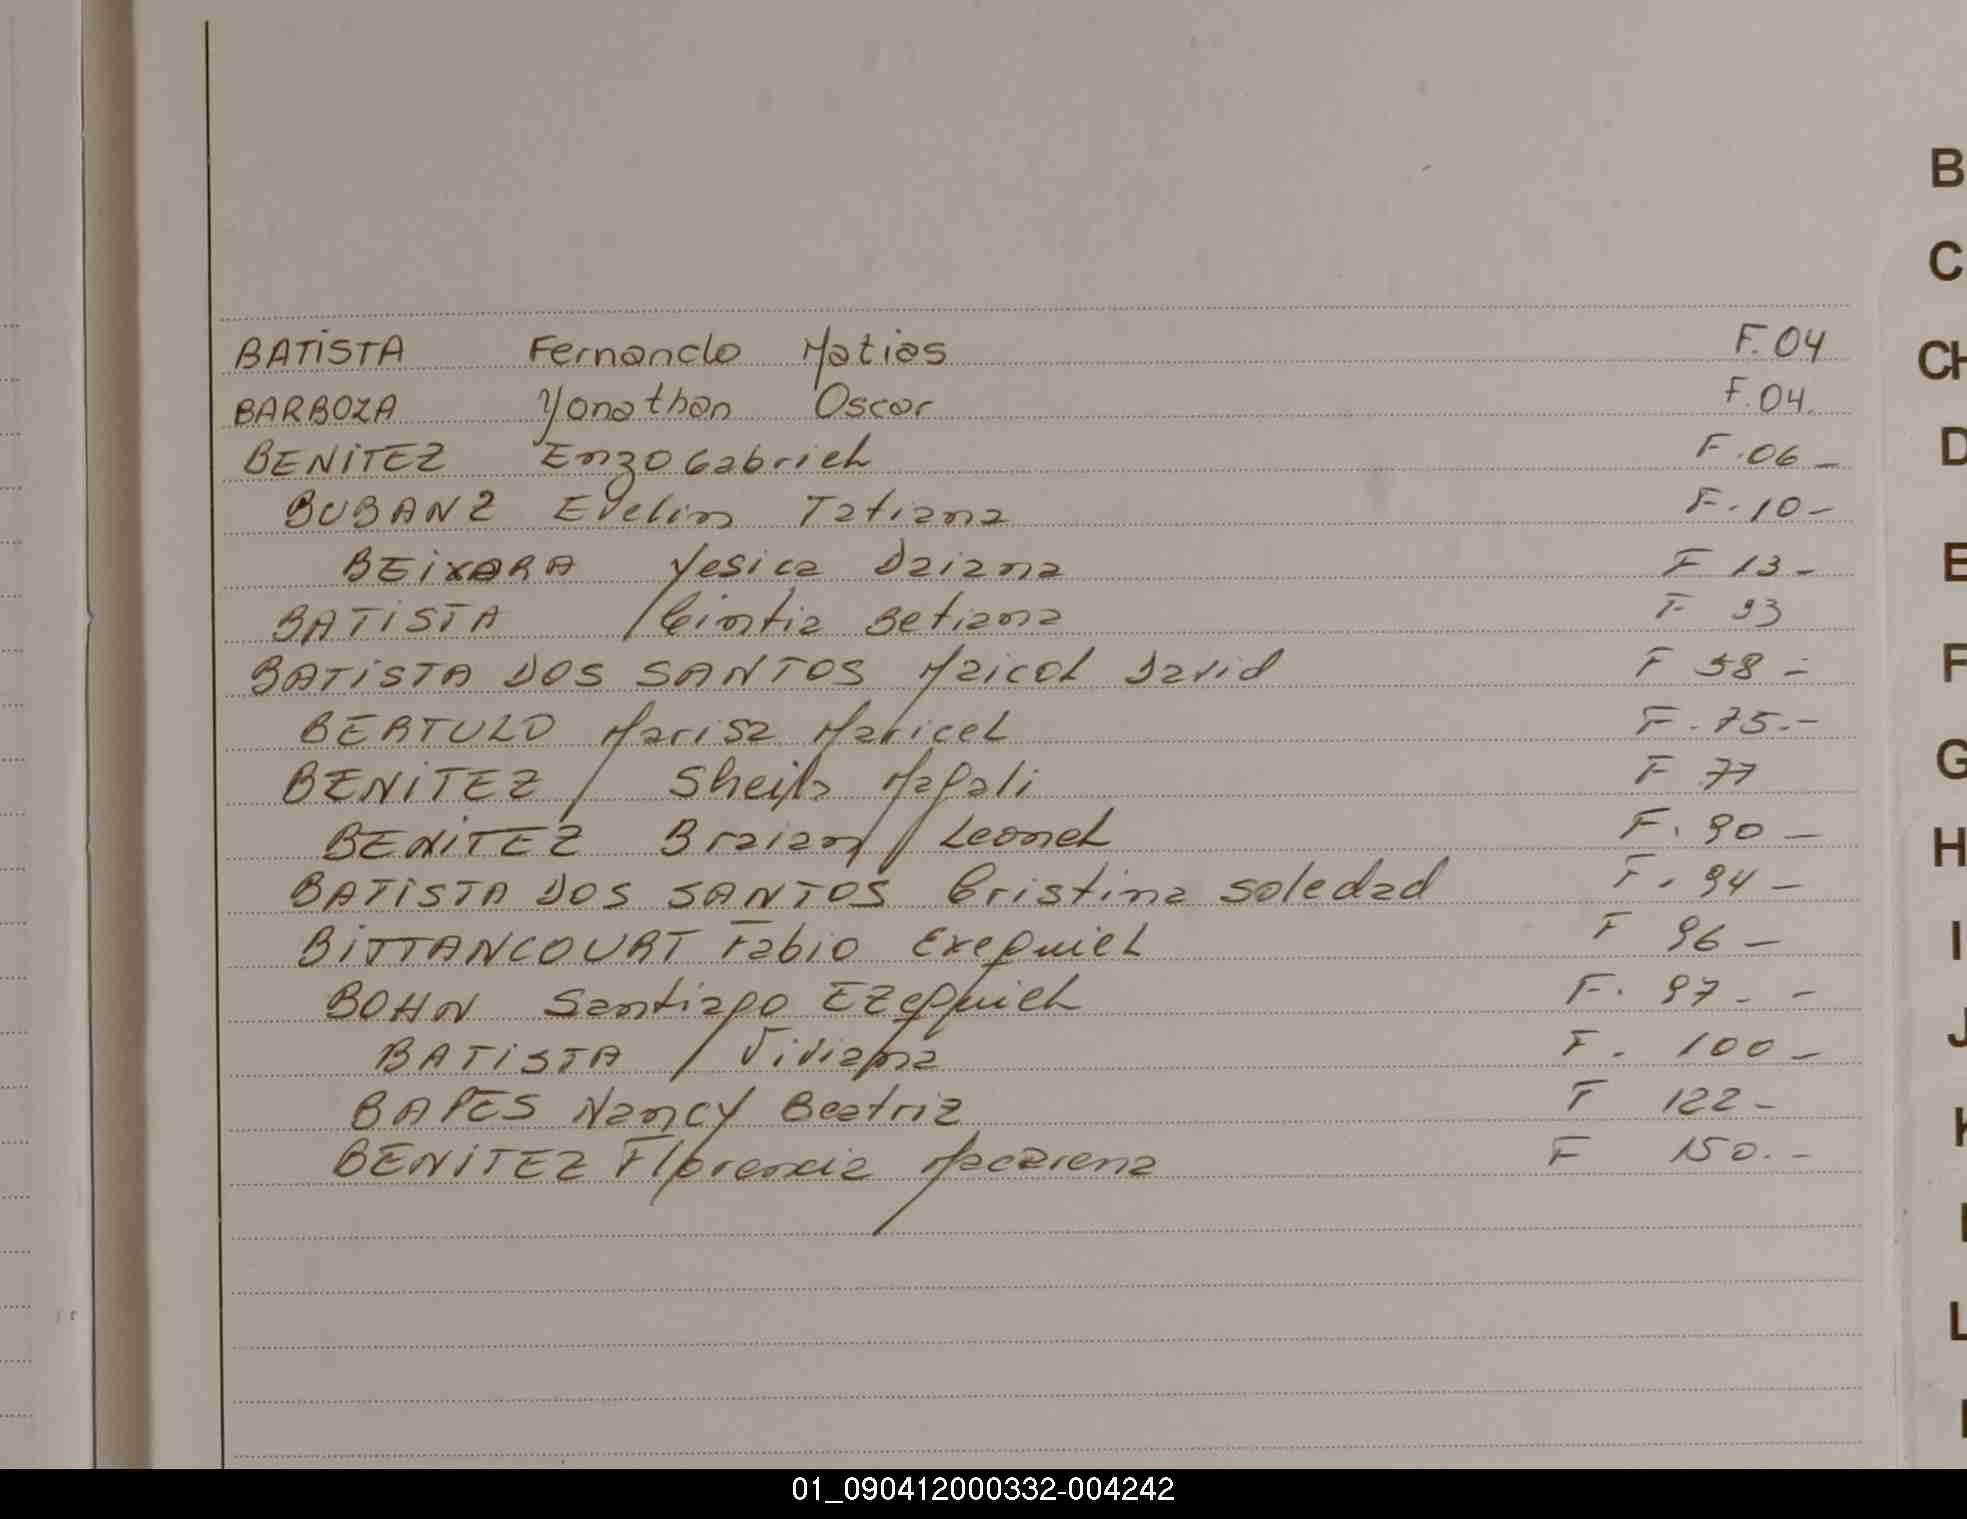 B
C
CH
D
E
F
G
H
I
J
K
L
BATISTA Fernando Matias F.04
BARBOZA Yonathan Oscar F.04.
BENITEZ Enzo Gabriel F.06-
BUBANZ Evelin Tatiana F.10-
BEIXARA Yesica Daiana F 13-
BATISTA Cintia Betiana F
BATISTA DOS SANTOS Maicol David F 58-
BERTULO Marisa Maricel F.75.-
BENITEZ Sheila Magali F 77
BENITEZ Braian Leonel F.90-
BATISTA DOS SANTOS Cristina Soledad F.94-
BITTANCOURT Fabio Exequiel F 96-
BOHN Santiago Ezequiel F.97.-
BATISTA Viviana F.100-
Nancy Beatriz F 122-
BENITEZ Florencia Macarena F 150.-
01_090412000332-004242